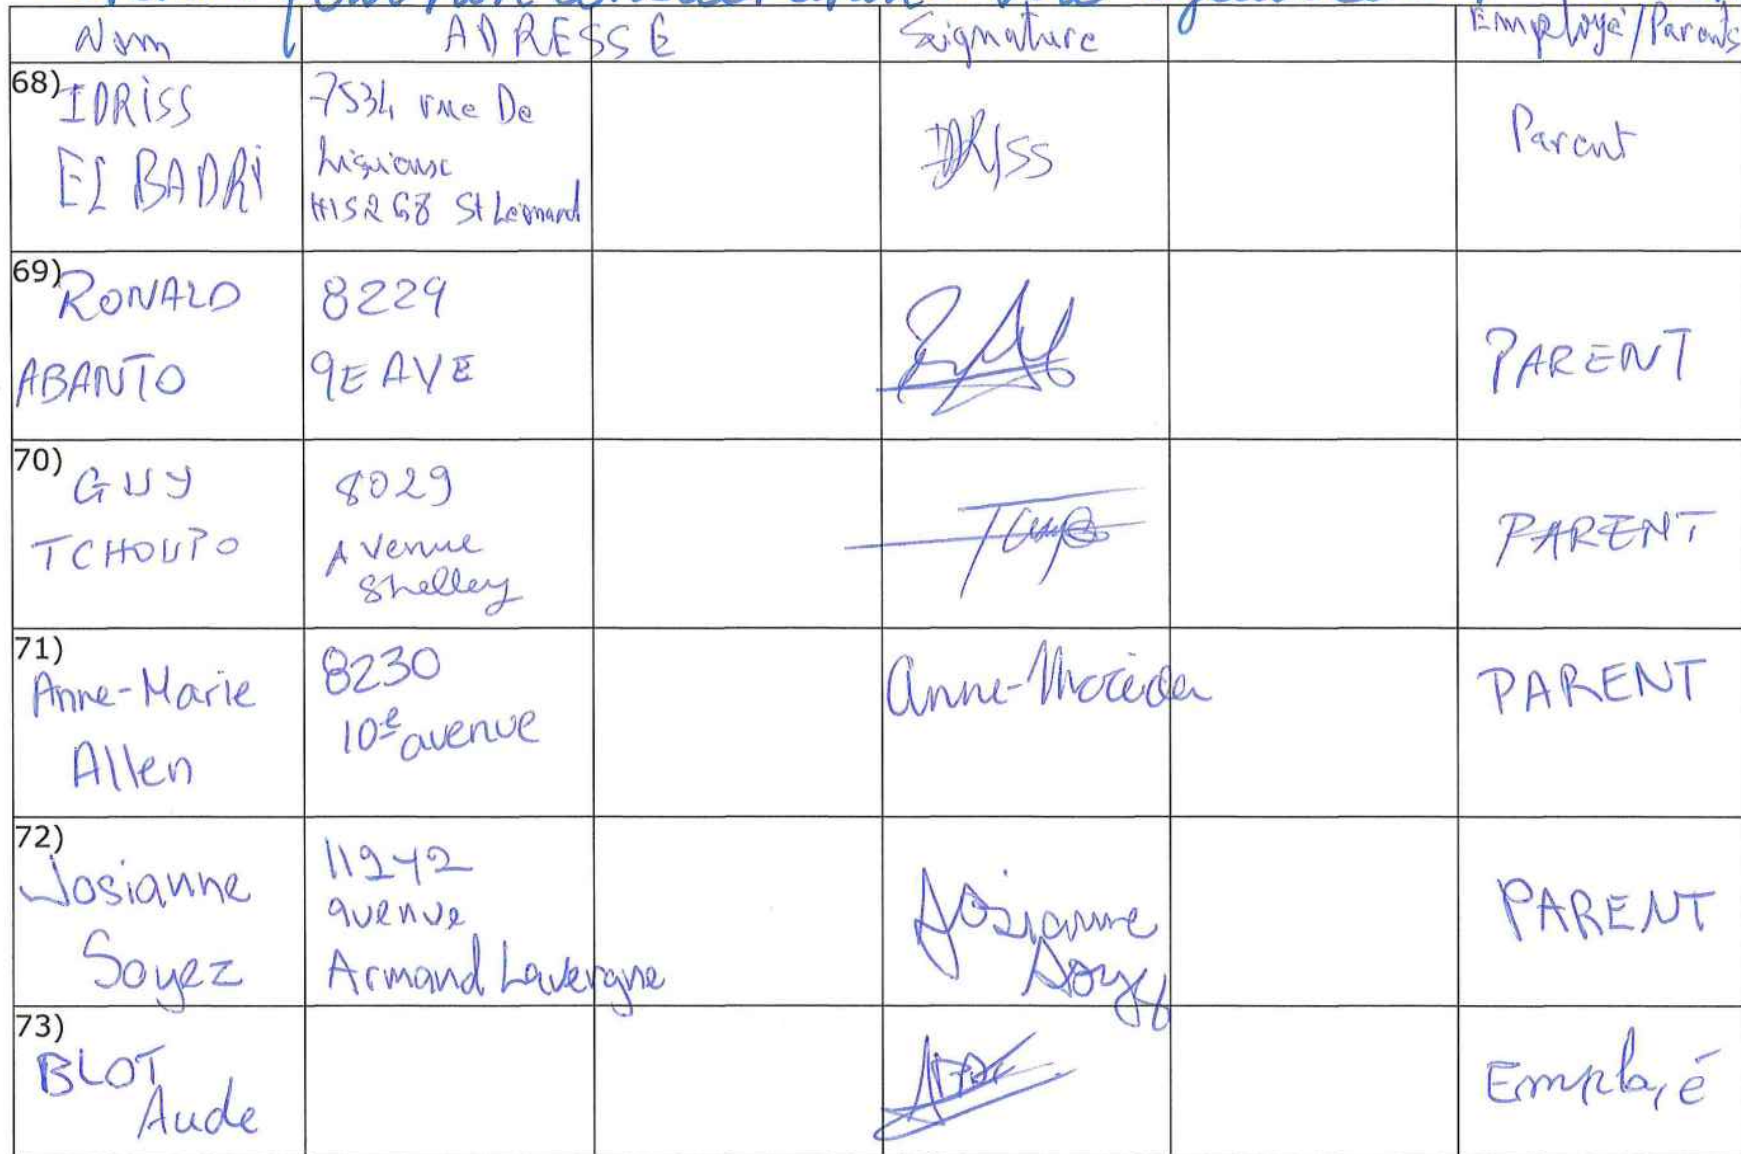 Nom ADRESSE Signature Employé/Parents
68) IDRISS
EL BADRI
7534 rue De
St Léonard
IDRISS
Parent
69) RONALD
ABANTO
8229
9E AVE
PARENT
70) GUY
TCHOUPO
8029
Avenue
Shelley
PARENT
71)
Anne-Marie
Allen
8230
10e avenue
PARENT
72)
Josianne
Soyez
11242
avenue
Armand Lavergne
Josianne
Soyez
PARENT
73)
BLOT
Aude
Employé